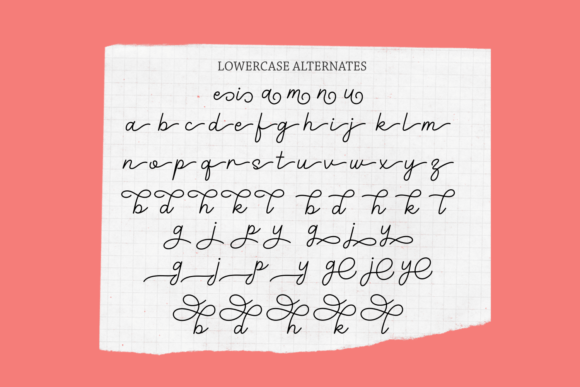 LOWERCASE ALTERNATES
e i a m n u
a b c d e f g h i j k l m
n o p q r s t u v w x y z
b d h k l b d h k l
g j p y g j y
g j p y g j y
b d h k l